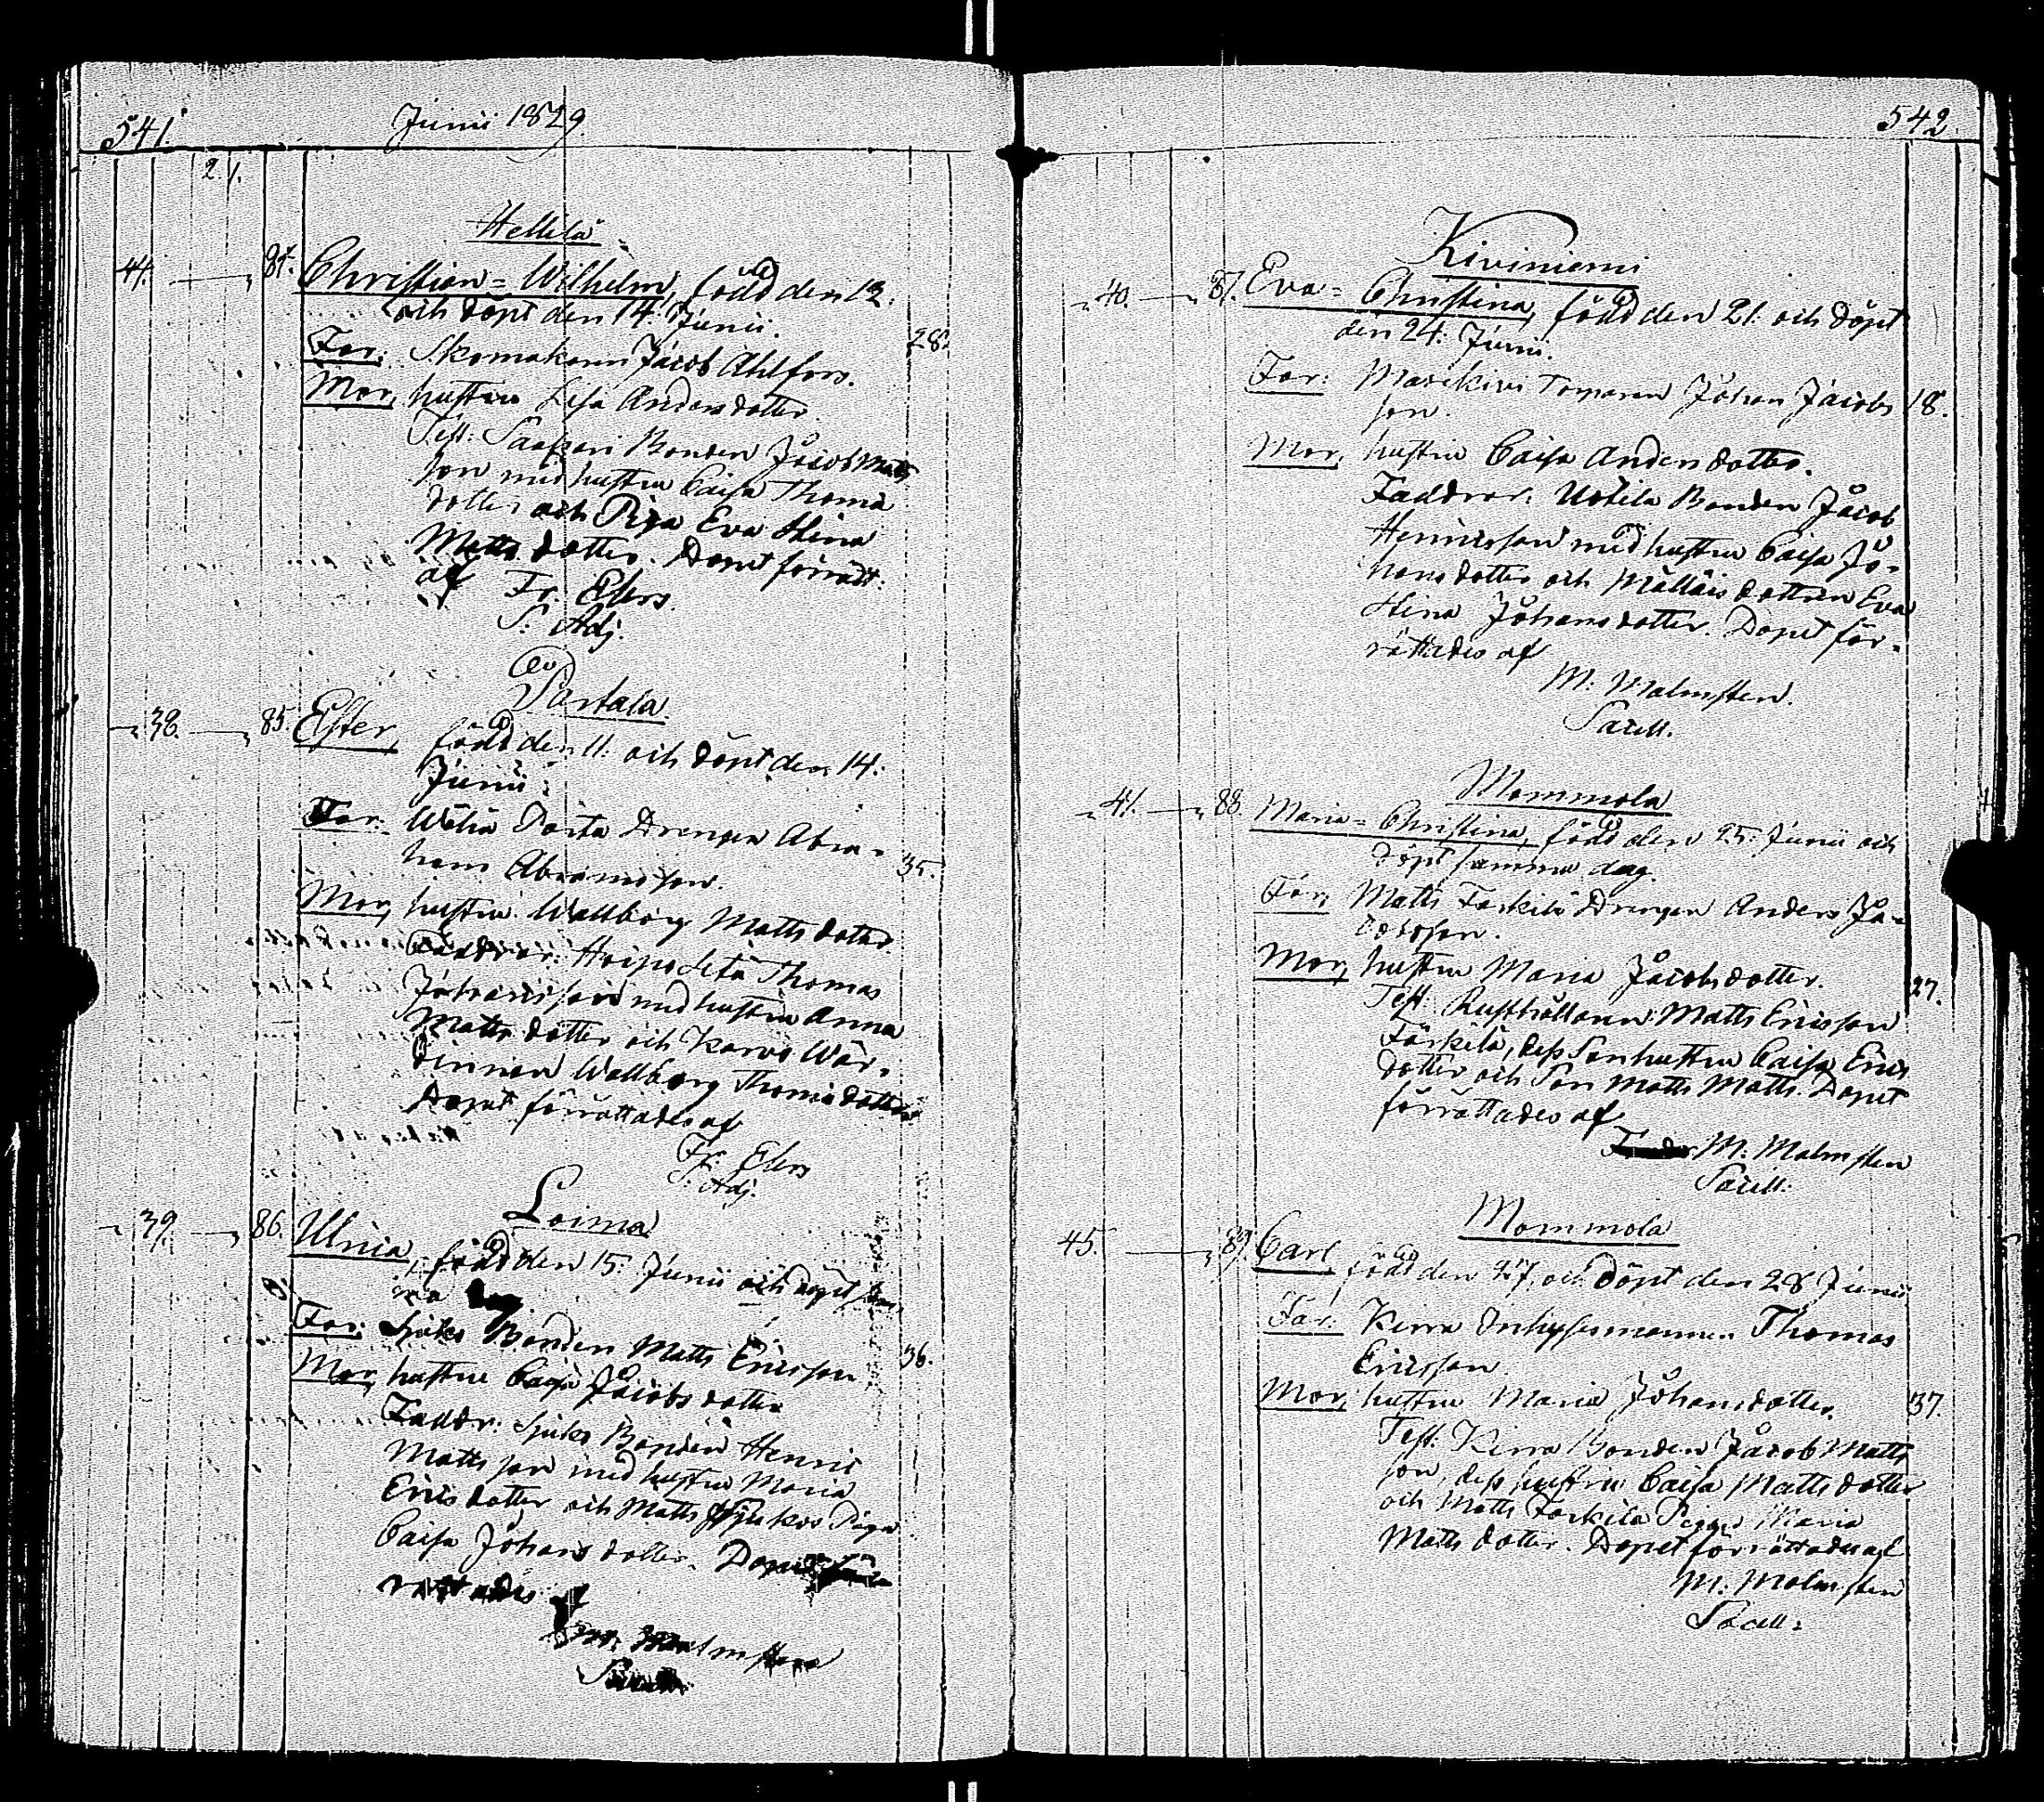 541.
Junii 1829.
2.1.
Hellilä
44. 84. Christian=Wilhelm, född den 12.
och döpt den 14. Junii.
Far: Skomakaren Jacob Ahlfors. 28.
Mor, hustru Lisa Andersdotter.
Test: Bonden Jacob Matts
son med hustru Caisa Thoma
dotter och Piga Eva Stina
Matts dotter. Dopet förrätt.
af Fr. Elers.
S. Adj.
Partala
38. 85. Ester, född den 11. och döpt den 14.
Junii.
Far: Drengen Abra-
ham Abramsson. 35.
Mor, hustru Wallborg Mattsdotter
Faddrar: Thomas
Johansson med hustru Anna
Matts dotter och Karvo Wär-
dinnan Wallborg Thomædotter
Dopet förrättades af
Fr. Elers
S. Adj.
Loima
39. 86. Ulrica, född den 15. Junii och döpt
ma dag
Far: Bonden Matts Ericsson 36.
Mor, hustru Caisa Jacobs dotter
Faddr: Bonden Henric
Matts son med hustru Maria
Erics dotter och Matts Piga
Caisa Johans dotter. Dopet för-
rättades af
M. Malmsten
Sacell.
542.
Kiviniemi
40. 87. Eva=Christina, född den 21. och döpt
den 24. Junii.
Far: Torparen Johan Jacobs 18.
son.
Mor, hustru Caisa Andersdotter.
Faddrar: Uotila Bonden Jacob
Henricsson med hustru Caisa Jo-
hansdotter och dottren Eva
Stina Johansdotter. Dopet för-
rättades af
M: Malmsten.
Sacell.
Mommola
41. 88. Maria=Christina, född den 25. Junii och
döpt samma dag.
Far, Matts Farkila Drengen Anders Ja-
cobsson.
Mor, hustru Maria Jacobsdotter. 27.
Test: Rusthållaren Matts Ericsson
Farkila, dess Sonhustru Caisa Erics
dotter och Son Matts Matts. Dopet
förrättades af
M: Malmsten
Sacell.
Mommola
45. 89. Carl, född den 27. och döpt den 28 Junii
Far: Kirra Inhysesmannen Thomas
Ericsson.
Mor, hustru Maria Johansdotter. 37.
Test: Kirra Bonden Jacob Matts
son, dess hustru Caisa Mattsdotter
och Matts Farkila Pigan Maria
Matts dotter. Dopet förrättades af
M: Malmsten
Sacell: